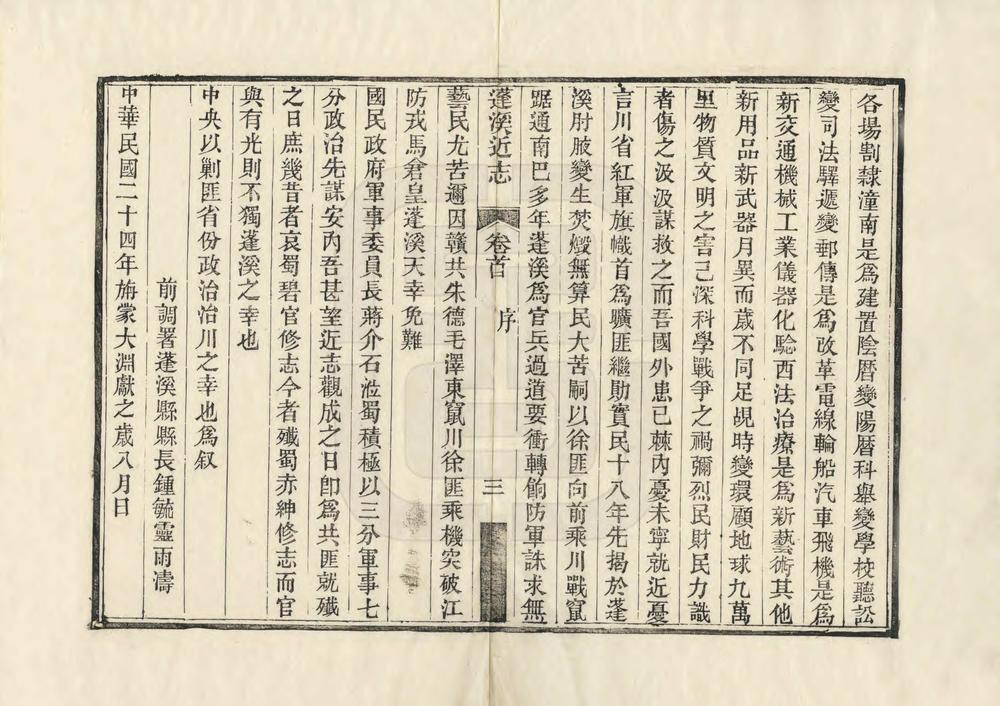 各場割隸潼南是爲建置陰曆變陽曆科舉變學校聽訟
變司法驛遞變郵傳是爲改革電線輪船汽車飛機是爲
新交通機械工業儀器化騐西法治療是爲新藝術其他
新用品新武器月異而歲不同足覘時變環顧地球九萬
里物質文明之害已深科學戰爭之禍彌烈民財民力識
者傷之汲汲謀救之而吾國外患已棘內憂未寧就近憂
言川省紅軍旗幟首爲曠匪繼勛實民十八年先揭於蓬
溪肘腋變生焚燬無算民大苦嗣以徐匪向前乘川戰竄
踞通南巴多年蓬溪爲官兵過道要衝轉餉防軍誅求無
蓬溪近志 卷首 序 三
藝民尤苦邇因贛共朱德毛澤東竄川徐匪乘機突破江
防戎馬倉皇蓬溪天幸免難
國民政府軍事委員長蔣介石涖蜀積極以三分軍事七
分政治先謀安內吾甚望近志觀成之日卽爲共匪就殲
之日庶幾昔者哀蜀碧官修志今者殲蜀赤紳修志而官
與有光則不獨蓬溪之幸也
中央以剿匪省份政治治川之幸也爲叙
前調署蓬溪縣縣長鍾毓靈雨濤
中華民國二十四年旃蒙大淵獻之歲八月日